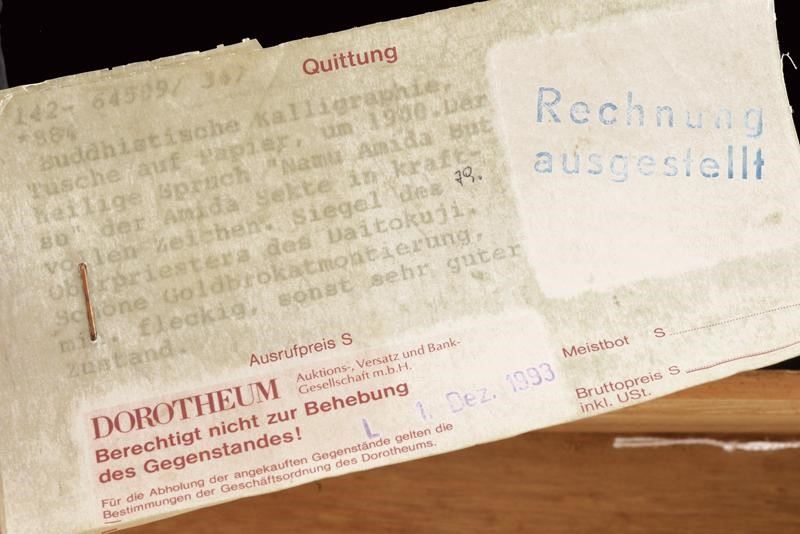 Quittung
142- 64509/ 347
*88/
Buddhistische Kalligraphie,
Tusche auf Papier, um 1900.Der
heilige Spruch "Namu Amida But
so" der Amida Sekte in kraft-
vollen Zeichen. Siegel des
Oberpriesters des Daitokuji.
Schöne Goldbrokatmontierung,
min. fleckig, sonst sehr guter
Zustand.
Rechnung
ausgestellt
Ausrufpreis S
Meistbot S
Bruttopreis S
inkl. USt.
DOROTHEUM
Auktions-, Versatz und Bank-
Gesellschaft m.b.H.
Berechtigt nicht zur Behebung
des Gegenstandes!
L 1. Dez. 1993
Für die Abholung der angekauften Gegenstände gelten die
Bestimmungen der Geschäftsordnung des Dorotheums.